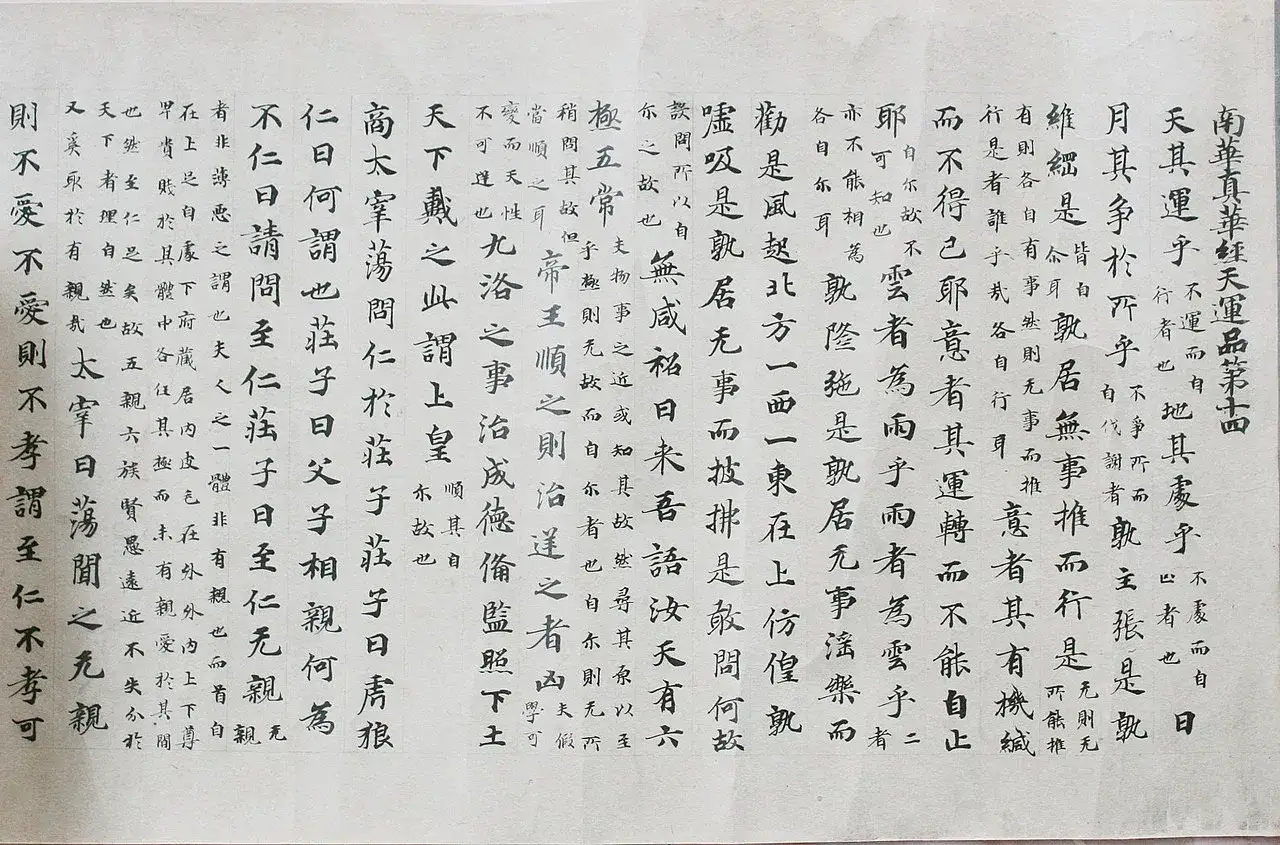 南華真華經天運品第十四
天其運乎不運而自行者也地其處乎不處而自止者也日
月其争於所乎不争所而自代謝者孰主張是孰
維綱是皆自尒耳孰居無事推而行是无則无所能推
有則各自有事然則无事而推行是者誰乎㢤各自行耳意者其有機緘
而不得已耶意者其運轉而不能自止
耶自尒故不可知也雲者為雨乎雨者為雲乎二者
亦不能相為各自尒耳孰隆施是孰居无事滛樂而
勸是風起北方一西一東在上仿偟孰
嘘吸是孰居无事而披拂是敢問何故
設問所以自尒之故也無咸祒曰来吾語汝天有六
極五常夫物事之近或知其故然尋其原以至乎極則无故而自尒者也自尒則无所
稍問其故但當順之耳帝王順之則治逆之者凶夫假學可
變而天性不可逆也九洛之事治成德俻監照下土
天下戴之此謂上皇順其自尒故也
商太宰蕩問仁於莊子莊子曰虎狼
仁曰何謂也莊子曰父子相親何為
不仁曰請問至仁莊子曰至仁无親无親
者非薄悪之謂也夫人之一體非有親也而首自在上足自處下府藏居内皮毛在外外内上下尊
卑貴賤於其體中各任其極而未有親愛於其間也然至仁足矣故五親六族賢愚遠近不失分於
天下者理自然也又奚取於有親哉太宰曰蕩聞之无親
則不愛不愛則不孝謂至仁不孝可